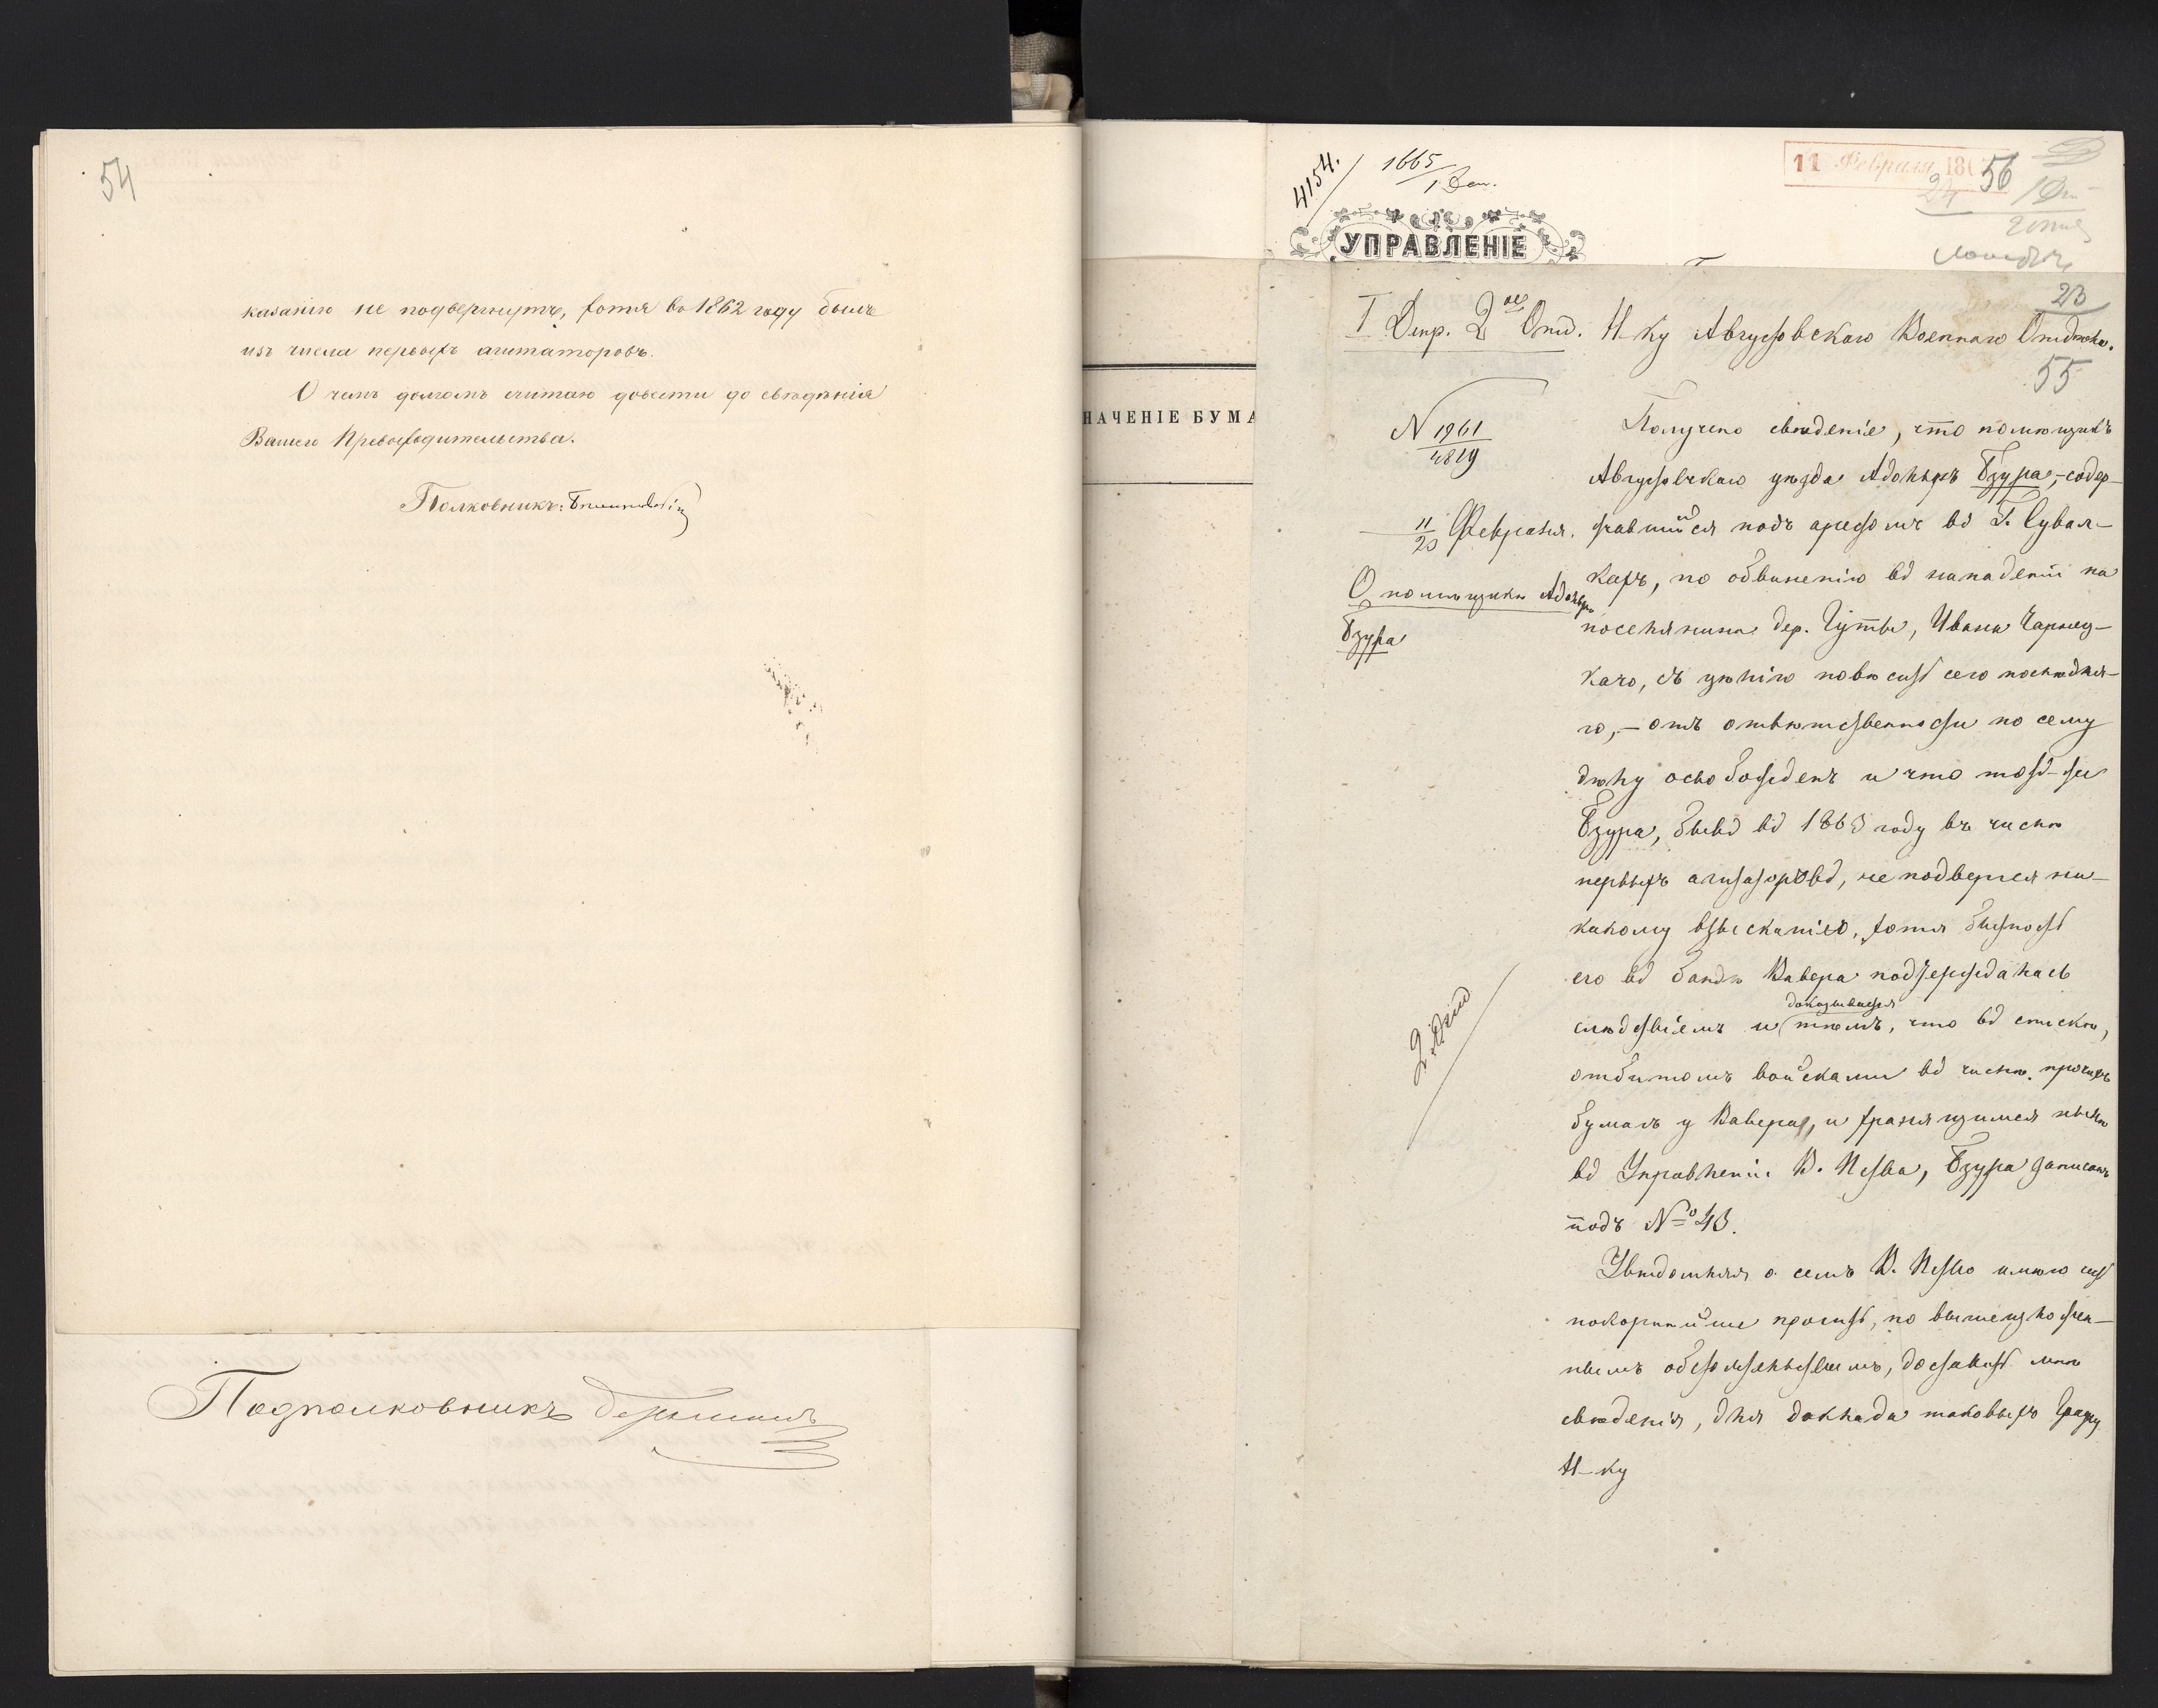 54
казанію не подвергнутъ, хотя въ 1862 году былъ
изъ числа первыхъ агитаторовъ.
О чемъ долгомъ считаю довести до свѣдѣнія
Вашего Превосходительства.
Полковникъ:
Подполковникъ
НАЧЕНІЕ БУМА
4154.
1665
1 Деп.
11 Февраля 186
56
24
УПРАВЛЕНІЕ
23
I Депр. 2ое Отд.
Н-ку Августовскаго Военнаго Отдѣла.
55
N 1961
4819
11/23 Февраля.
О помѣщикѣ Адольфѣ
Бзура
Получено свѣденіе, что помѣщикъ
Августовскаго уѣзда Адольфъ Бзура, – содер-
жавшійся подъ арестомъ въ Г. Сувал-
кахъ, по обвиненію въ нападеніи на
поселянина дер. Гуты, Ивана Чарнец-
каго, съ цѣлію повѣсить сего послѣдня-
го, – отъ отвѣтственности по сему
дѣлу освобожденъ и что тотъ-же
Бзура, бывъ въ 1863 году въ числѣ
первыхъ агитаторовъ, не подвергся ни-
какому взысканію, хотя бытность
его въ бандѣ Вавера подтверждалась
слѣдствіемъ и доказывается тѣмъ, что въ спискѣ,
отбитомъ войсками въ числѣ прочихъ
бумагъ у Вавера, и хранящимся нынѣ
въ Управленіи В. П-ства, Бзура записанъ
подъ № 43.
Увѣдомляя о семъ В. П-ство имѣю честь
покорнѣйше просить, по вышеизложен-
нымъ обстоятельствамъ, доставить мнѣ
свѣденія, для доклада таковыхъ Графу
Н-ку